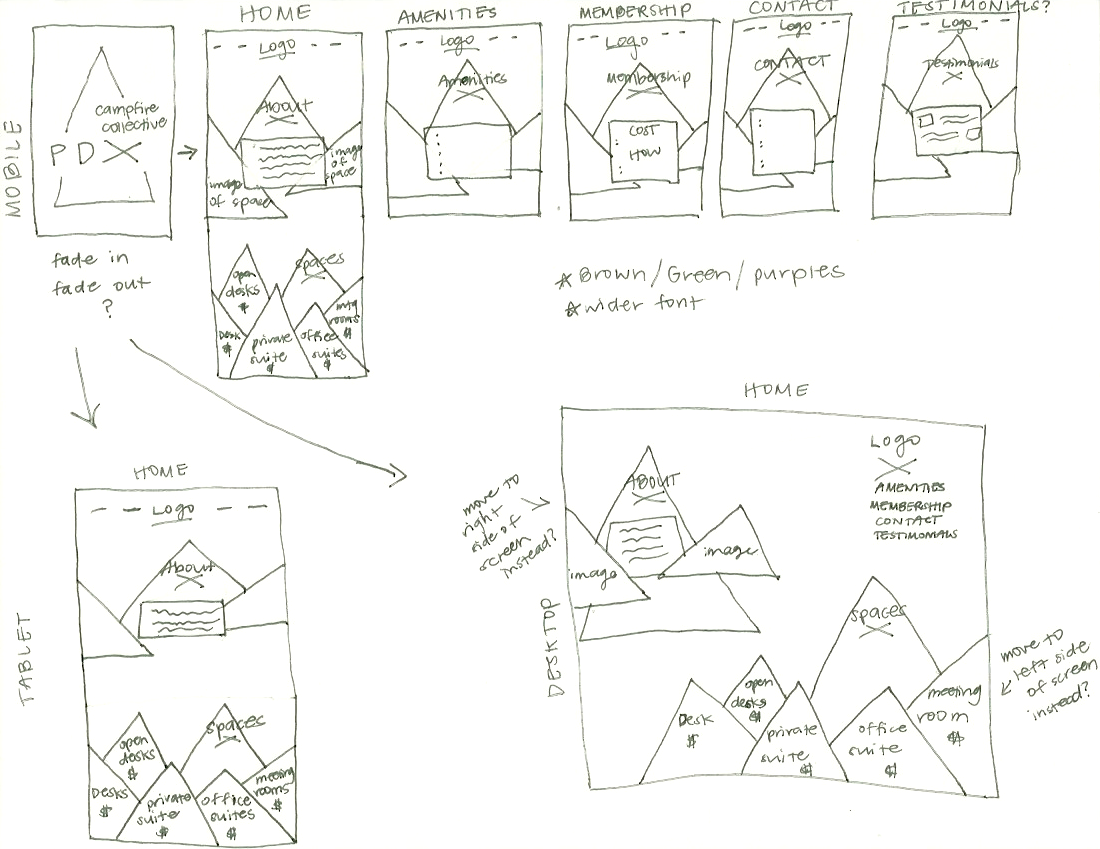 MOBILE
campfire
collective
PDX
fade in
fade out
?
HOME
Logo
About
image
of
space
image
of space
open
desks
$
spaces
Desk
$
private
suite
$
office
suites
$
mtg
rooms
$
AMENITIES
Logo
Amenities
MEMBERSHIP
Logo
Membership
COST
HOW
CONTACT
Logo
CONTACT
TESTIMONIALS?
Logo
Testimonials
* Brown/Green/purples
* wider font
TABLET
HOME
Logo
About
open
desks
$
spaces
Desks
$
private
suite
$
office
suites
$
meeting
rooms
$
DESKTOP
HOME
move to
right
side of
screen
instead?
ABOUT
image
image
Logo
AMENITIES
MEMBERSHIP
CONTACT
TESTIMONIALS
spaces
Desk
$
open
desks
$
private
suite
$
office
suite
$
meeting
room
$
move to
left side
of screen
instead?